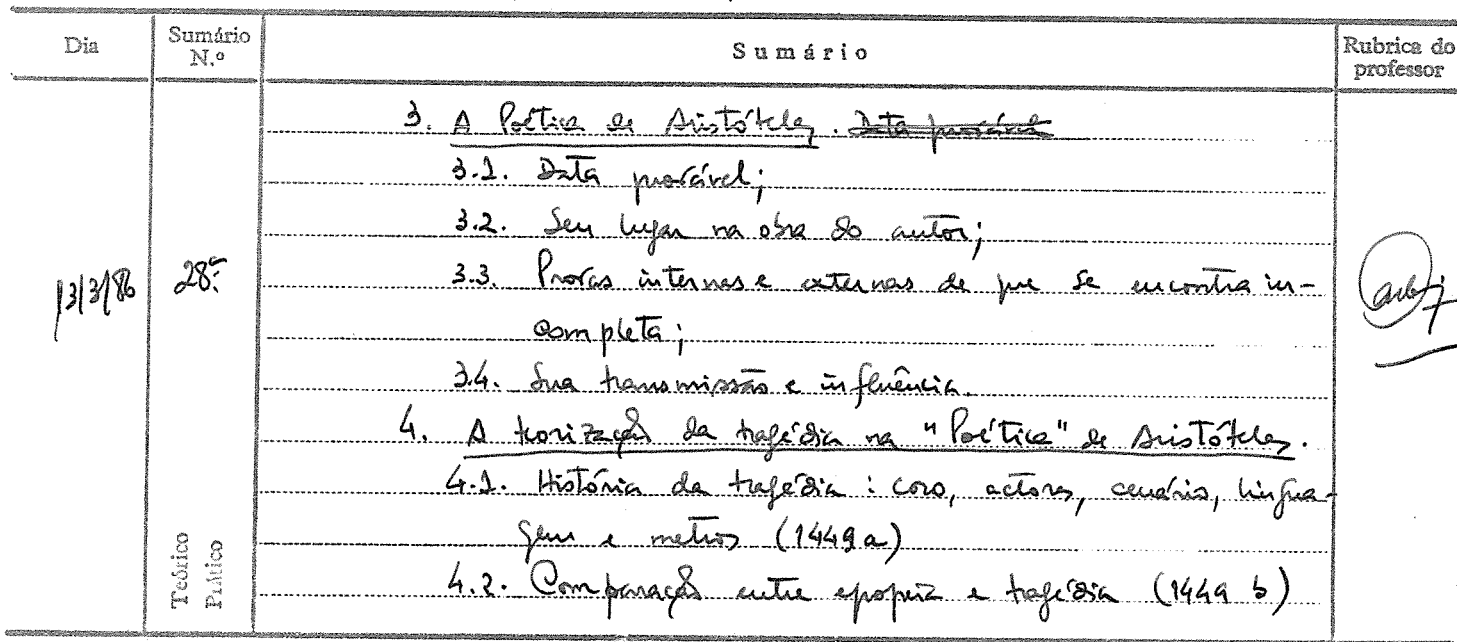 Dia Sumário N.º Sumário Rubrica do professor
3. A Poética de Aristóteles. Data provável
3.1. Data provável;
3.2. Seu lugar na obra do autor;
13/3/86 28.ª 3.3. Provas internas e externas de que se encontra in-
completa;
3.4. Sua transmissão e influência.
4. A teorização da tragédia na "Poética" de Aristóteles.
4.1. História da tragédia: coro, actores, cenário, lingua-
gem e metros (1449a)
Teórico
Prático
4.2. Comparação entre epopeia e tragédia (1449 b)